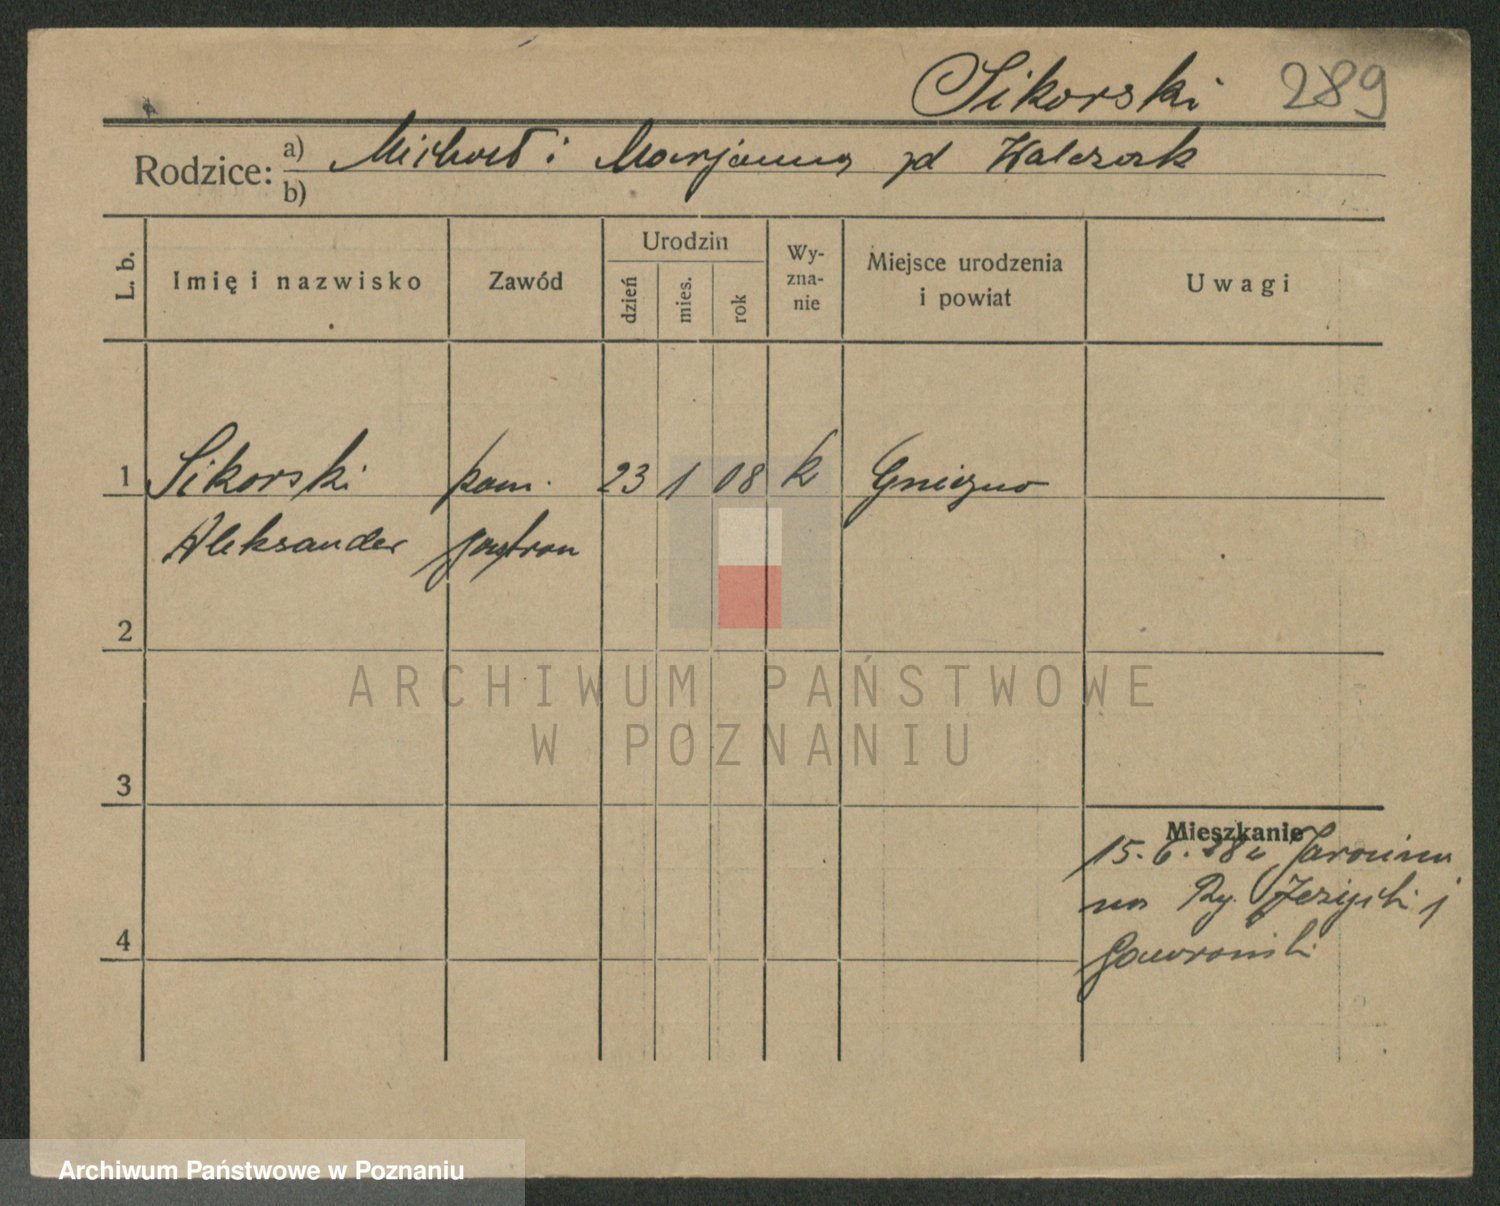 Sikorski 289
Rodzice: a) Michał i Marjanna zd Walczak
b)
L. b. Imię i nazwisko Zawód Urodzin Wyzna- Miejsce urodzenia Uwagi
dzień mies. rok nie i powiat
1 Sikorski pom. 23 1 08 k Gniezno
Aleksander gastron
2
ARCHIWUM PAŃSTWOWE
W POZNANIU
3
Mieszkanie
15. 6. 28 z Jarocina
na Ry.
4
Archiwum Państwowe w Poznaniu